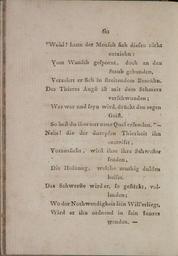 60
"Wohl! kann der Mensch sich diesen nicht
entziehn:
Vom Wunsch gespornt, doch an den
Staub gebunden,
Verzehrt er sich in
Des Thieres Angst ist mit dem Schmerz
verschwunden;
Was war und seyn wird, drückt den regen
Geist.
So hast du ihm nur neue Qual erfunden." —
Nein! die der dumpfen Thierheit ihn
entreisst,
Vernunft, wird ihre Schwester
senden,
Die Hoffnung, welche muthig dulden
heisst.
Das Schwerste wird er, so gestärkt, vol-
lenden;
Wo der Nothwendigkeit sein Will' erliegt,
Wird er ihn ordnend in sein Innres
wenden. —